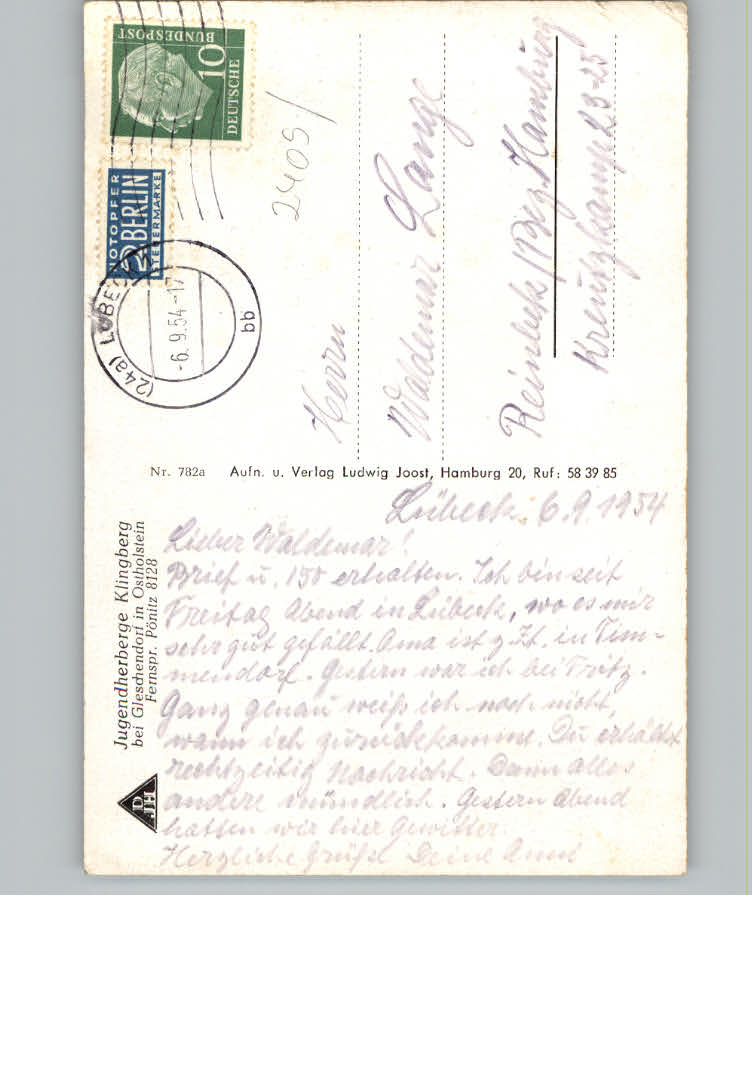 Jugendherberge Klingberg
bei Gleschendorf in Ostholstein
Fernspr. Pönitz 8128
D
JH
Lübeck, 6.9.1954
Lieber Waldemar!
Brief u. 150 erhalten. Ich bin seit
Freitag Abend in Lübeck, wo es mir
sehr gut gefällt. Oma ist z. Zt. in Tim-
mendorf. Gestern war ich bei Fritz.
Ganz genau weiß ich noch nicht,
wann ich zurückkomme. Du erhältst
rechtzeitig Nachricht. Dann alles
andere mündlich. Gestern Abend
hatten wir hier Gewitter.
Herzliche Grüße Deine Anni
Nr. 782a Aufn. u. Verlag Ludwig Joost, Hamburg 20, Ruf: 58 39 85
DEUTSCHE
BUNDESPOST
10
NOTOPFER
2 BERLIN
STEUERMARKE
(24a) LÜBECK
-6.9.54-17
bb
2405/
Herrn
Waldemar Lange
Reinbek /Bez. Hamburg